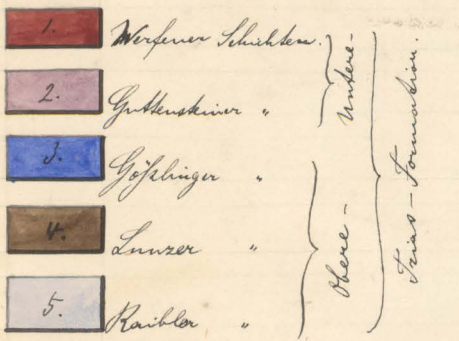 1. Werfener Schichten.
2. Guttensteiner "
3. Gößlinger "
4. Lunzer "
5. Raibler "
Untere-
Obere-
Trias-Formation.